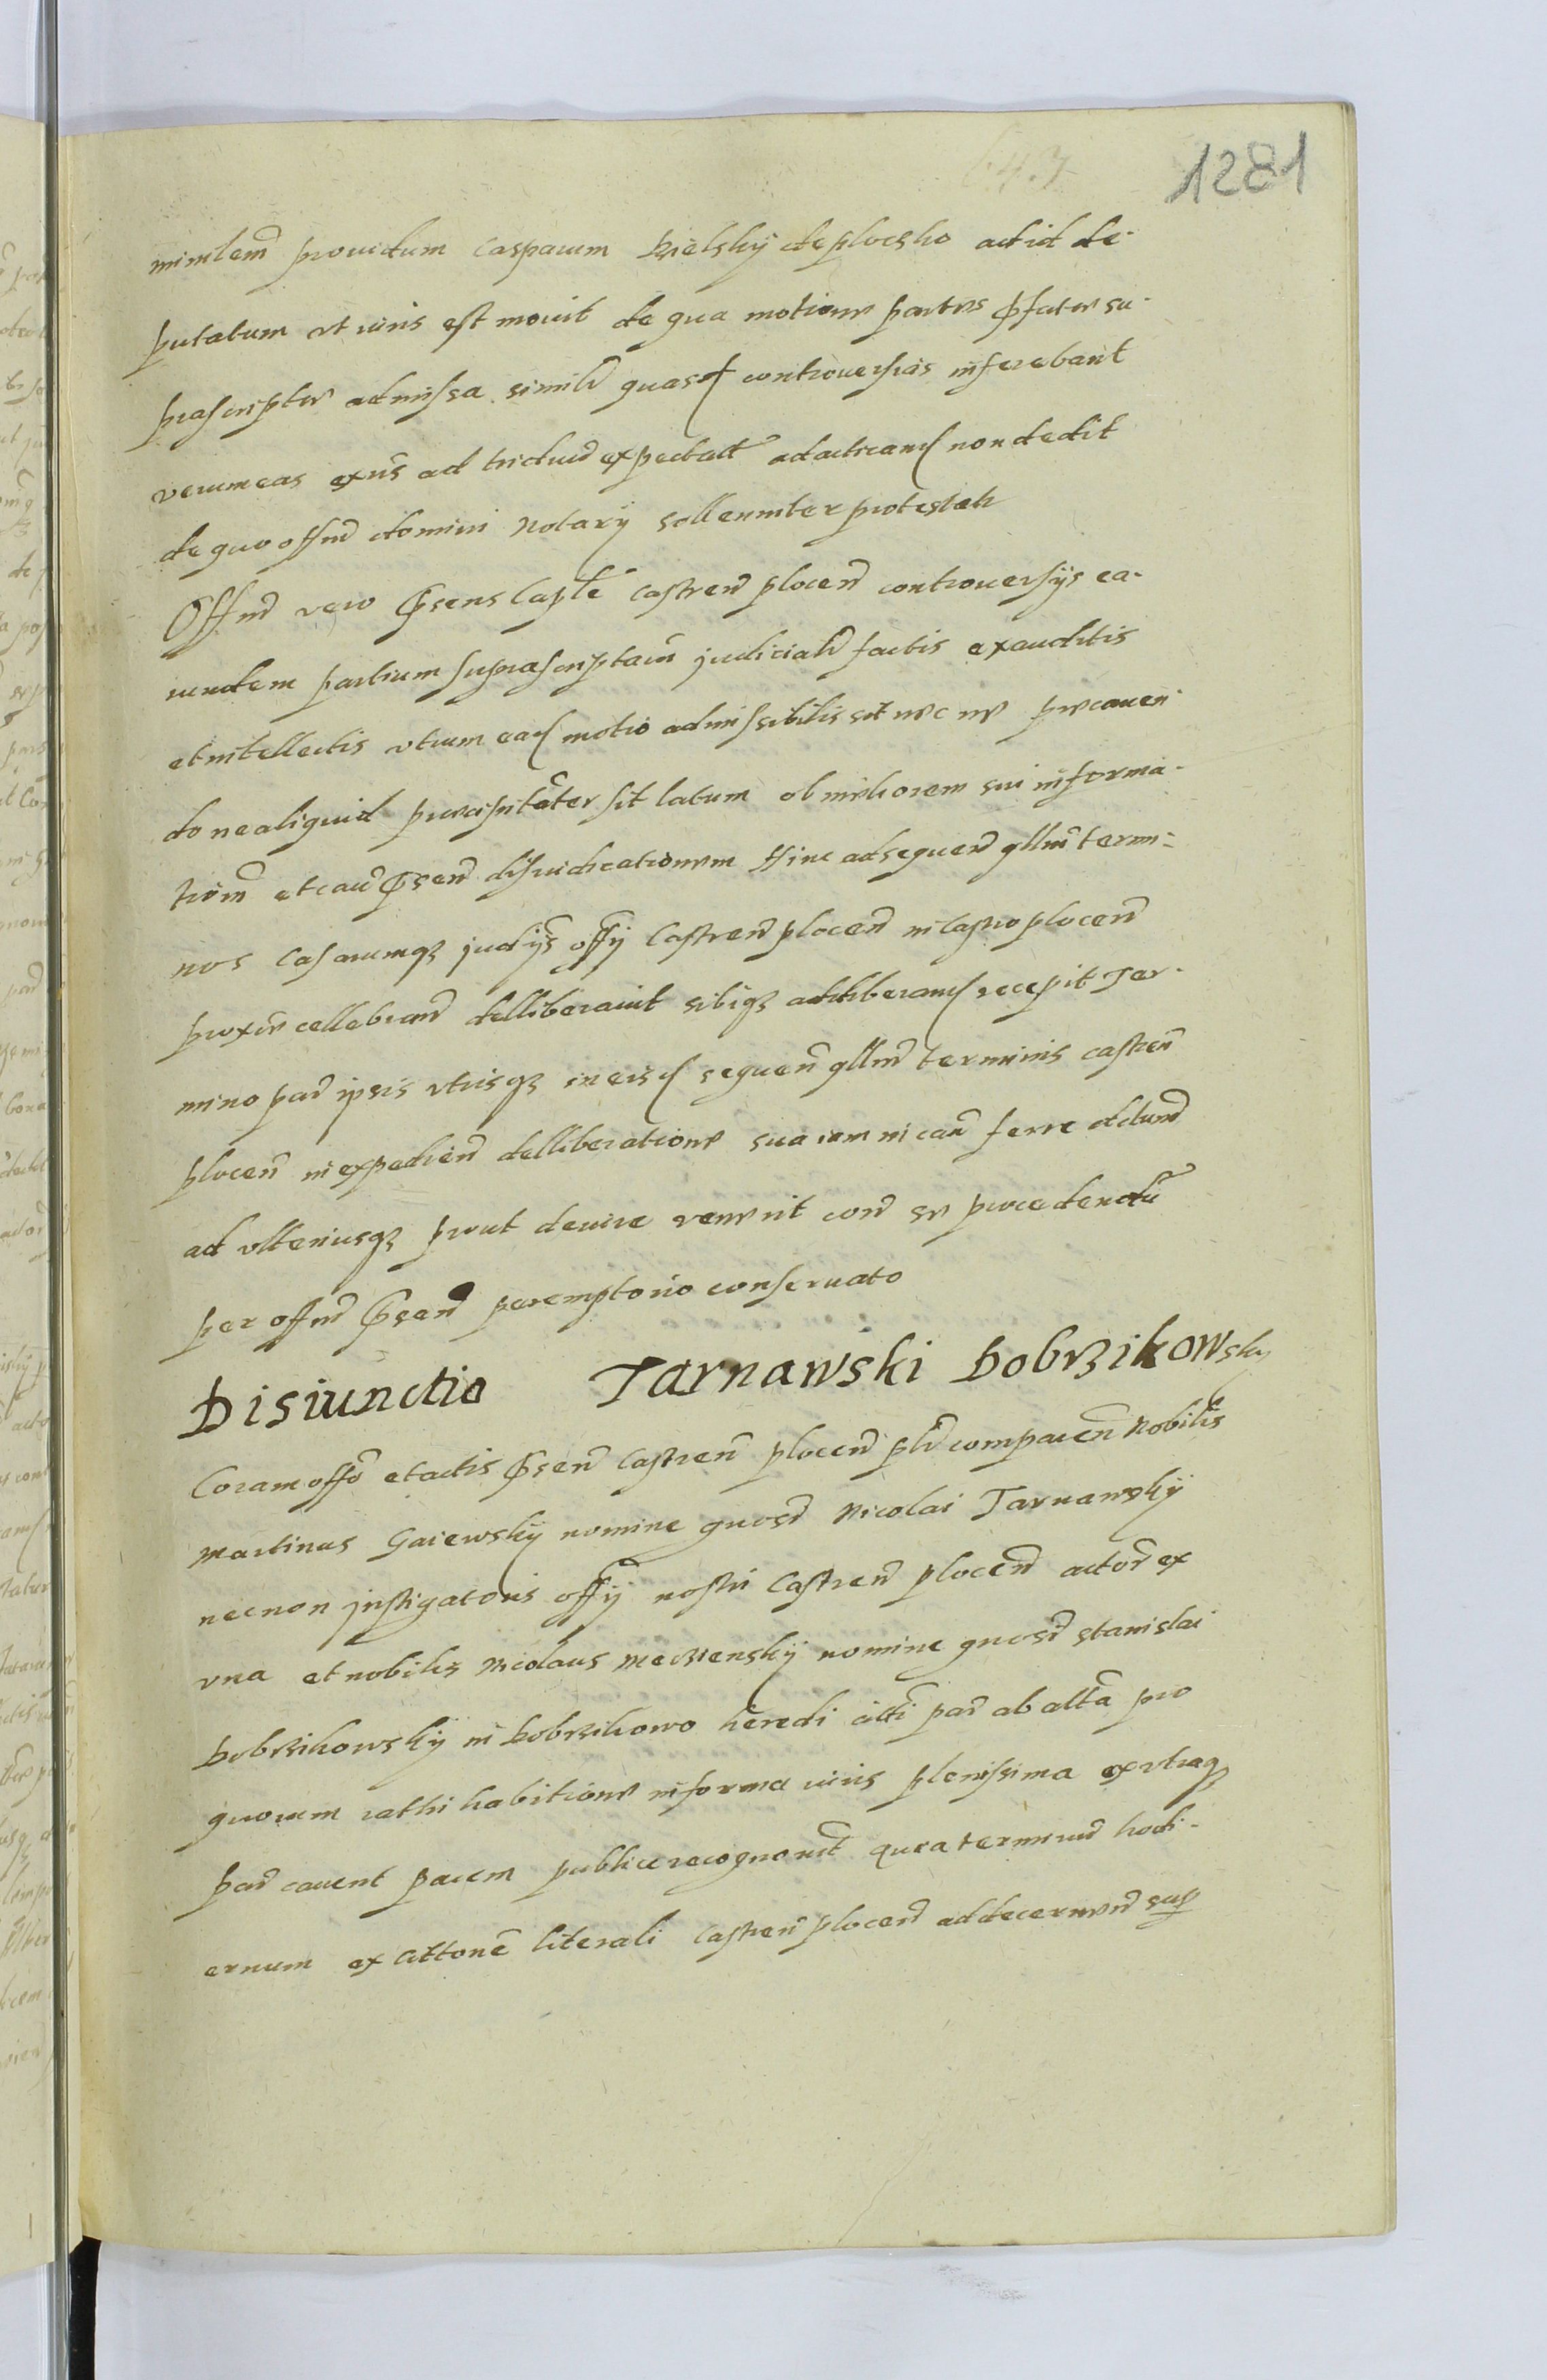 1281
ministem prouidum Casparum Bielsky de plocsko ad id de-
putatum vt iuris est mouit de qua motione partes pfate su-
prascripte admissa simile quasd controuersias inferebant
verum eas exns ad triduu expectat ad acticand non dedit
de quo offm domini Notary sollenniter protestat
Offm vero psens Capte Castren plocen controuersys ea-
rundem partium suprascriptaru judiciali factis exauditis
et intellectis vtrum ead motio admissibilis sit nec ne precauen-
do ne aliquid precipitater sit latum ob meliorem sui informa-
tiom et cau psen disiudicationem Hinc ad sequen qllm termi-
nos Causarumqz judys offy Castren plocen in Castro plocen
proxie cellebrand delliberauit sibiqz ad deliberand recepit Ter-
mino par ipsis vtrisqz in eisd sequen qllm terminis castren
plocen in expedien delliberatione sua iam in cau ferre dictum
ad vlteriusqz prout de iure venerit coru se procedendu
per offm psen peremptorio conseruato
Disiunctio Tarnawski Dobrzikowsky
Coram offo et actis psen Castren plocen plr comparen Nobilis
Martinus Gaiewsky nomine gnosi Nicolai Tarnawsky
necnon jnstigatoris offy nostri Castren plocen actor ex
vna et nobilis Nicolaus Meczensky nomine gnosi Stanislai
Dobrzikowsky in Dobrzikowo heredi citti par ab alta pro
quorum rathi habitione in forma iuris plenissima ex vtraqz
par cauent parem publice recognouert quia terminu hodi-
ernum ex cittone literali castren plocen ad decernen sup